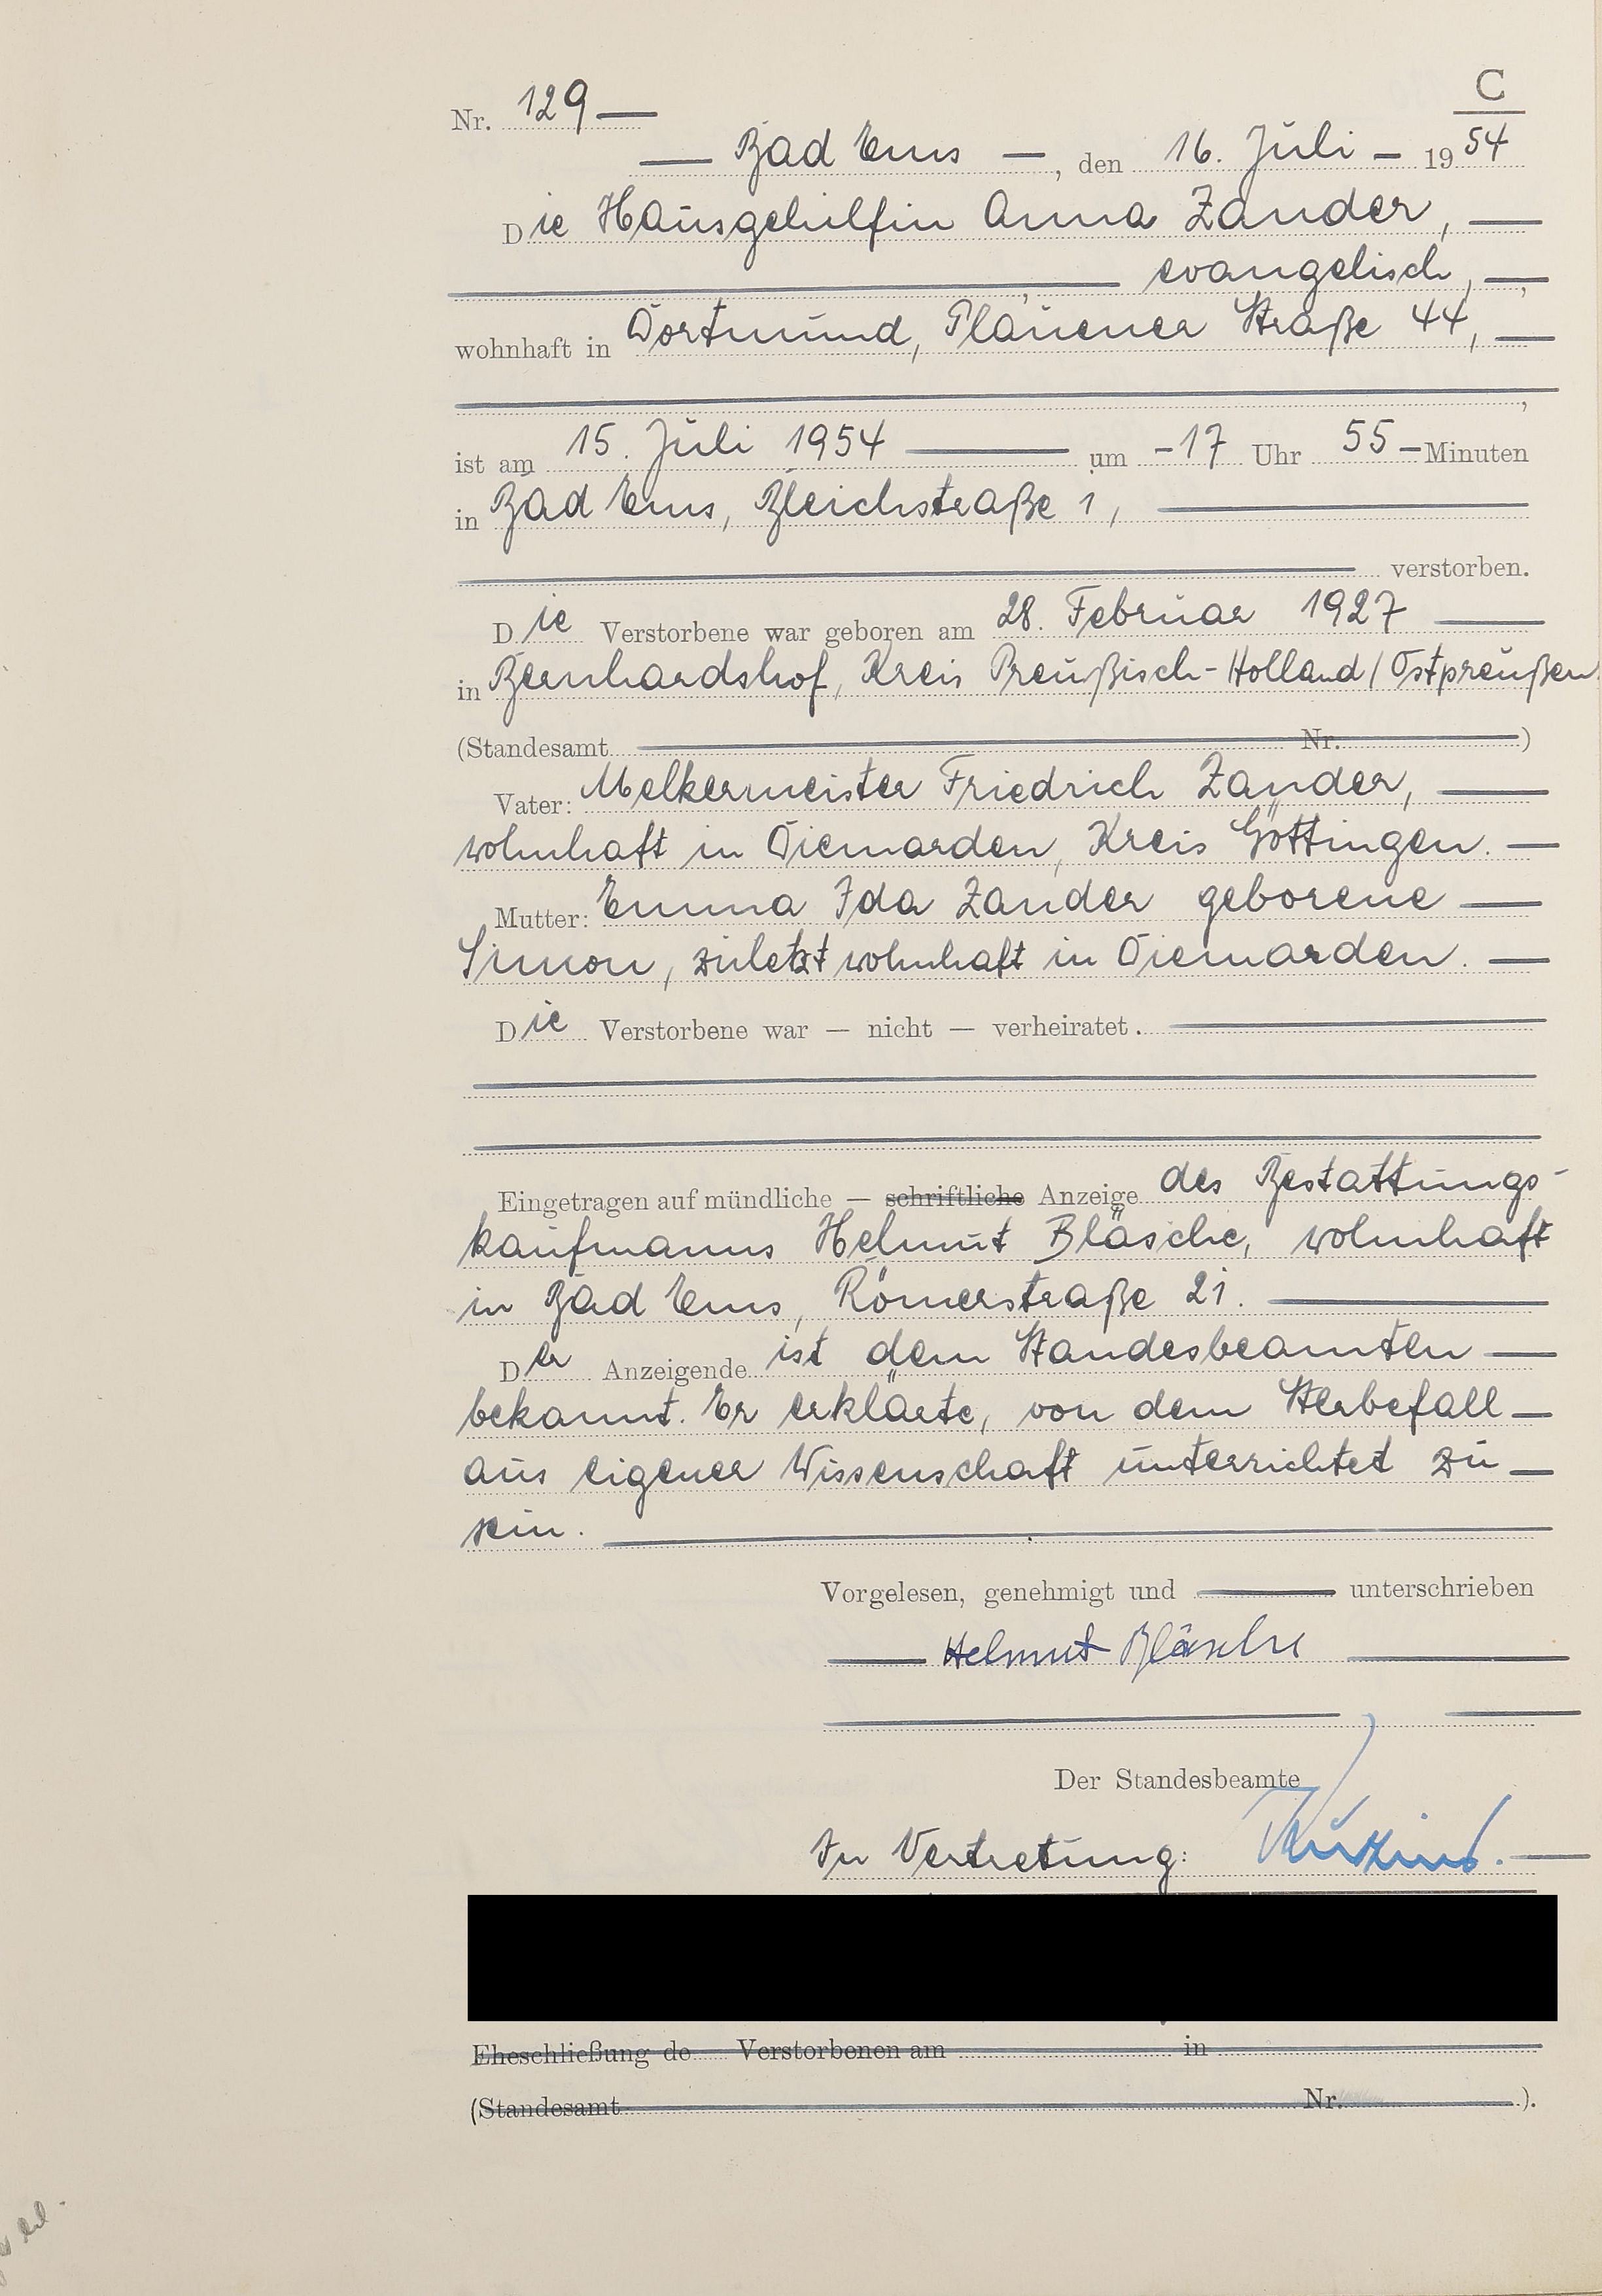 C
Nr. 129 —
— Bad Ems —, den 16. Juli — 1954
Die Hausgehilfin Anna Zander, —
— evangelisch, —,
wohnhaft in Dortmund, Plauener Straße 44, —
,
ist am 15. Juli 1954 — um - 17 Uhr 55 — Minuten
in Bad Ems, Bleichstraße 1, —
— verstorben.
Die Verstorbene war geboren am 28. Februar 1927 —
in Bernhardshof, Kreis Preußisch-Holland/Ostpreußen.
(Standesamt — Nr. —)
Vater: Melkermeister Friedrich Zander, —
wohnhaft in Diemarden, Kreis Göttingen. —
Mutter: Emma Ida Zander geborene —
Simon, zuletzt wohnhaft in Diemarden. —
Die Verstorbene war — nicht — verheiratet. —
Eingetragen auf mündliche — schriftliche Anzeige des Bestattungs-
kaufmanns Helmut Bläsche, wohnhaft
in Bad Ems, Römerstraße 21. —
Der Anzeigende ist dem Standesbeamten —
bekannt. Er erklärte, von dem Sterbefall —
aus eigener Wissenschaft unterrichtet zu —
sein. —
Vorgelesen, genehmigt und — unterschrieben
— Helmut Bläsche —
Der Standesbeamte
In Vertretung:
Eheschließung de Verstorbenen am in
(Standesamt Nr. ).